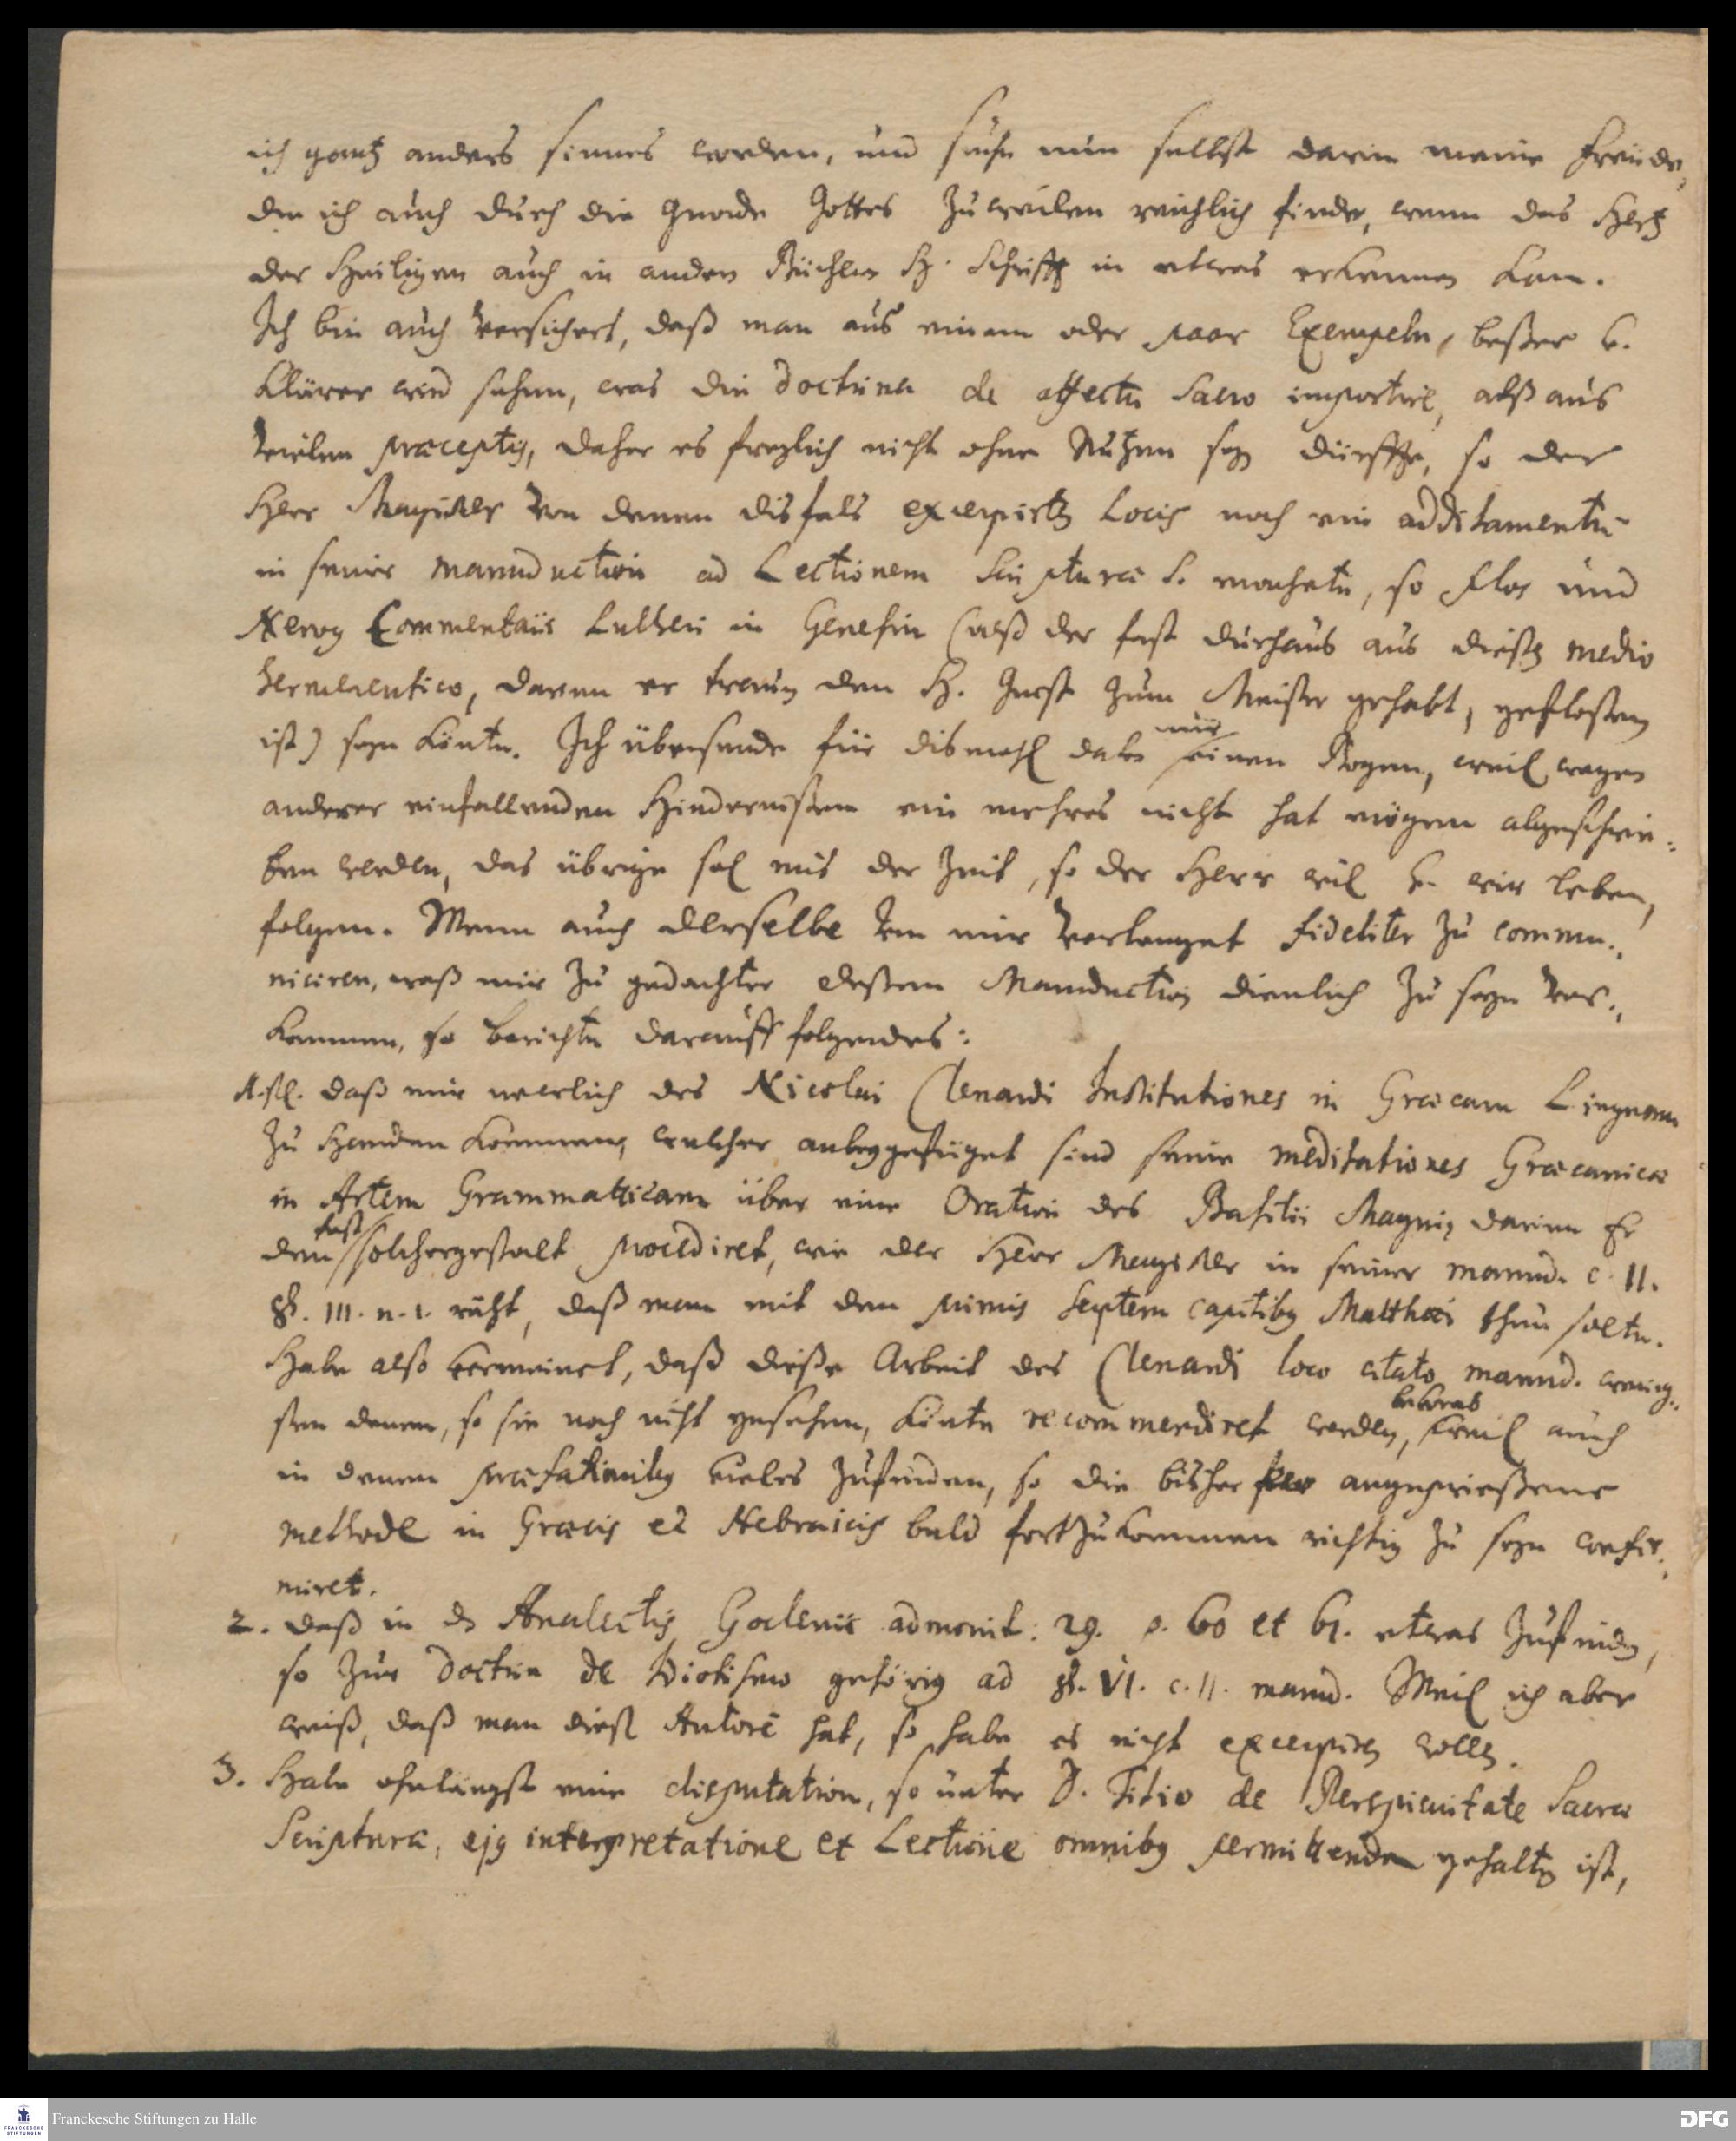 ich gantz anders sinnes worden, und suche nun selbst darin meine Freude,
die ich auch durch die Gnade Gottes zuweilen reichlich finde, wenn das Hertz
der Heiligen auch in andern Büchern H. Schrifft in etwas erkennen kan.
Ich bin auch versichert, daß man aus einem oder paar Exempeln, beßer u.
klärer wird sehen, was die doctrina de affectu Sacro importire, alß aus
vielen præceptis, daher es freylich nicht ohne Nutzen seyn dürffte, so der
Herr Magister von denen disfals excerpirten Locis noch ein additamentū
in seiner manuductioni ad Lectionem Scripturæ S. machete, so flos und
Nervus Commentariis Lutheri in Genesin (alß der fast durchaus aus dießem medio
hermeneutico, darinn er traun den H. Geist zum Meister gehabt, gefloßen
ist) seyn könte. Ich übersende für dismahl daher nur einen Bogen, weil wegen
anderer einfallenden Hindernißen ein mehres nicht hat mögen abgeschrie-
ben werden, das übrige sol mit der Zeit, so der Herr wil u. wir leben,
folgen. Wenn auch derselbe von mir verlanget fideliter zu commu-
niciren, waß mir zu gedachter deßen Manuduction dienlich zu seyn vor-
kommen, so berichte darauff folgendes:
1. daß mir neulich des Nicolai Clenardi Institutiones in Græcam Linguam
zu Handen kommen, welcher anbeygefüget sind seine meditationes Græcanicæ
in Artem Grammaticam über eine Oration des Basilii Magni, darinn Er
denn fast solchergestalt procediret, wie der Herr Magister in seiner manud. c. II.
§. III. n. 1. räht, daß man mit den primis septem capitibus Matthæi thun solte.
Habe also vermeinet, daß dieße Arbeit des Clenardi loco citato manud. wenig-
sten denen, so sie noch nicht gesehen, könte recommendiret werden, weil auch
in denen præfationibus vieles zufinden, so die bisher angeprießene
methode in Græcis et Hebraicis bald fortzukommen richtig zu seyn confir-
miret.
2. daß in den Analectis Goclenii admonit: 29. p. 60 et 61. etwas zufinden,
so zur doctrin de Idiotismo gehörig ad §. VI. c. II. manud. Weil ich aber
weiß, daß man dieß Autorē hat, so habe es nicht excerpiren wollen.
3. Habe ohnlängst eine disputation, so unter D. Titio de Perspicuitate Sacræ
Scripturæ, ejus interpretatione et Lectione omnibus permittenda gehalten ist,
Franckesche Stiftungen zu Halle
DFG